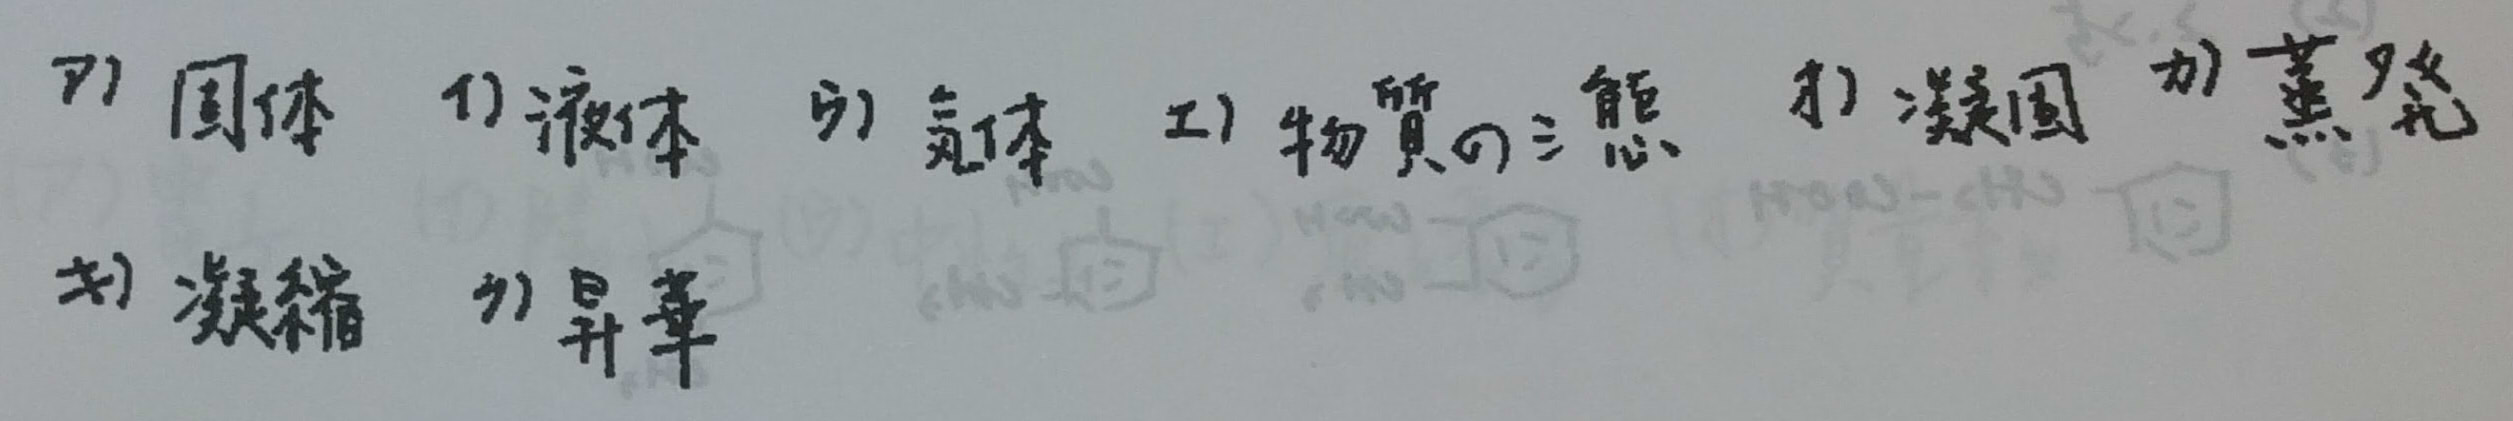 ア) 固体 イ) 液体 ウ) 気体 エ) 物質の三態 オ) 凝固 カ) 蒸発
キ) 凝縮 ク) 昇華